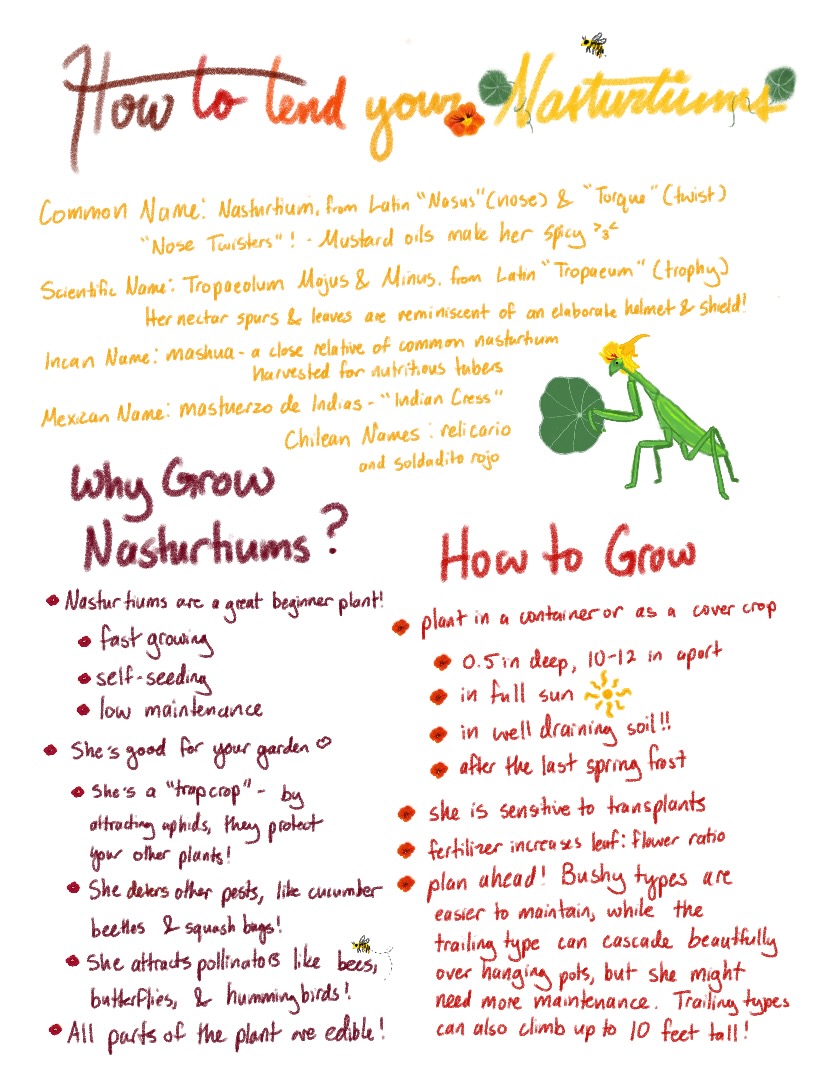 How to tend your Nasturtiums
Common Name: Nasturtium, from Latin "Nasus" (nose) & "Torque" (twist)
"Nose Twisters"! - Mustard oils make her spicy >3<
Scientific Name: Tropaeolum Majus & Minus, from Latin "Tropaeum" (trophy)
Her nectar spurs & leaves are reminiscent of an elaborate helmet & shield!
Incan Name: mashua - a close relative of common nasturtium
harvested for nutritious tubers
Mexican Name: mastuerzo de Indias - "Indian Cress"
Chilean Names: relicario
and soldadito rojo
Why Grow
Nasturtiums?
• Nasturtiums are a great beginner plant!
• fast growing
• self-seeding
• low maintenance
• She's good for your garden ♡
• She's a "trap crop" - by
attracting aphids, they protect
your other plants!
• She deters other pests, like cucumber
beetles & squash bugs!
• She attracts pollinators like bees,
butterflies, & hummingbirds!
• All parts of the plant are edible!
How to Grow
• plant in a container or as a cover crop
• 0.5 in deep, 10-12 in apart
• in full sun
• in well draining soil!!
• after the last spring frost
• she is sensitive to transplants
• fertilizer increases leaf: flower ratio
• plan ahead! Bushy types are
easier to maintain, while the
trailing type can cascade beautfully
over hanging pots, but she might
need more maintenance. Trailing types
can also climb up to 10 feet tall!